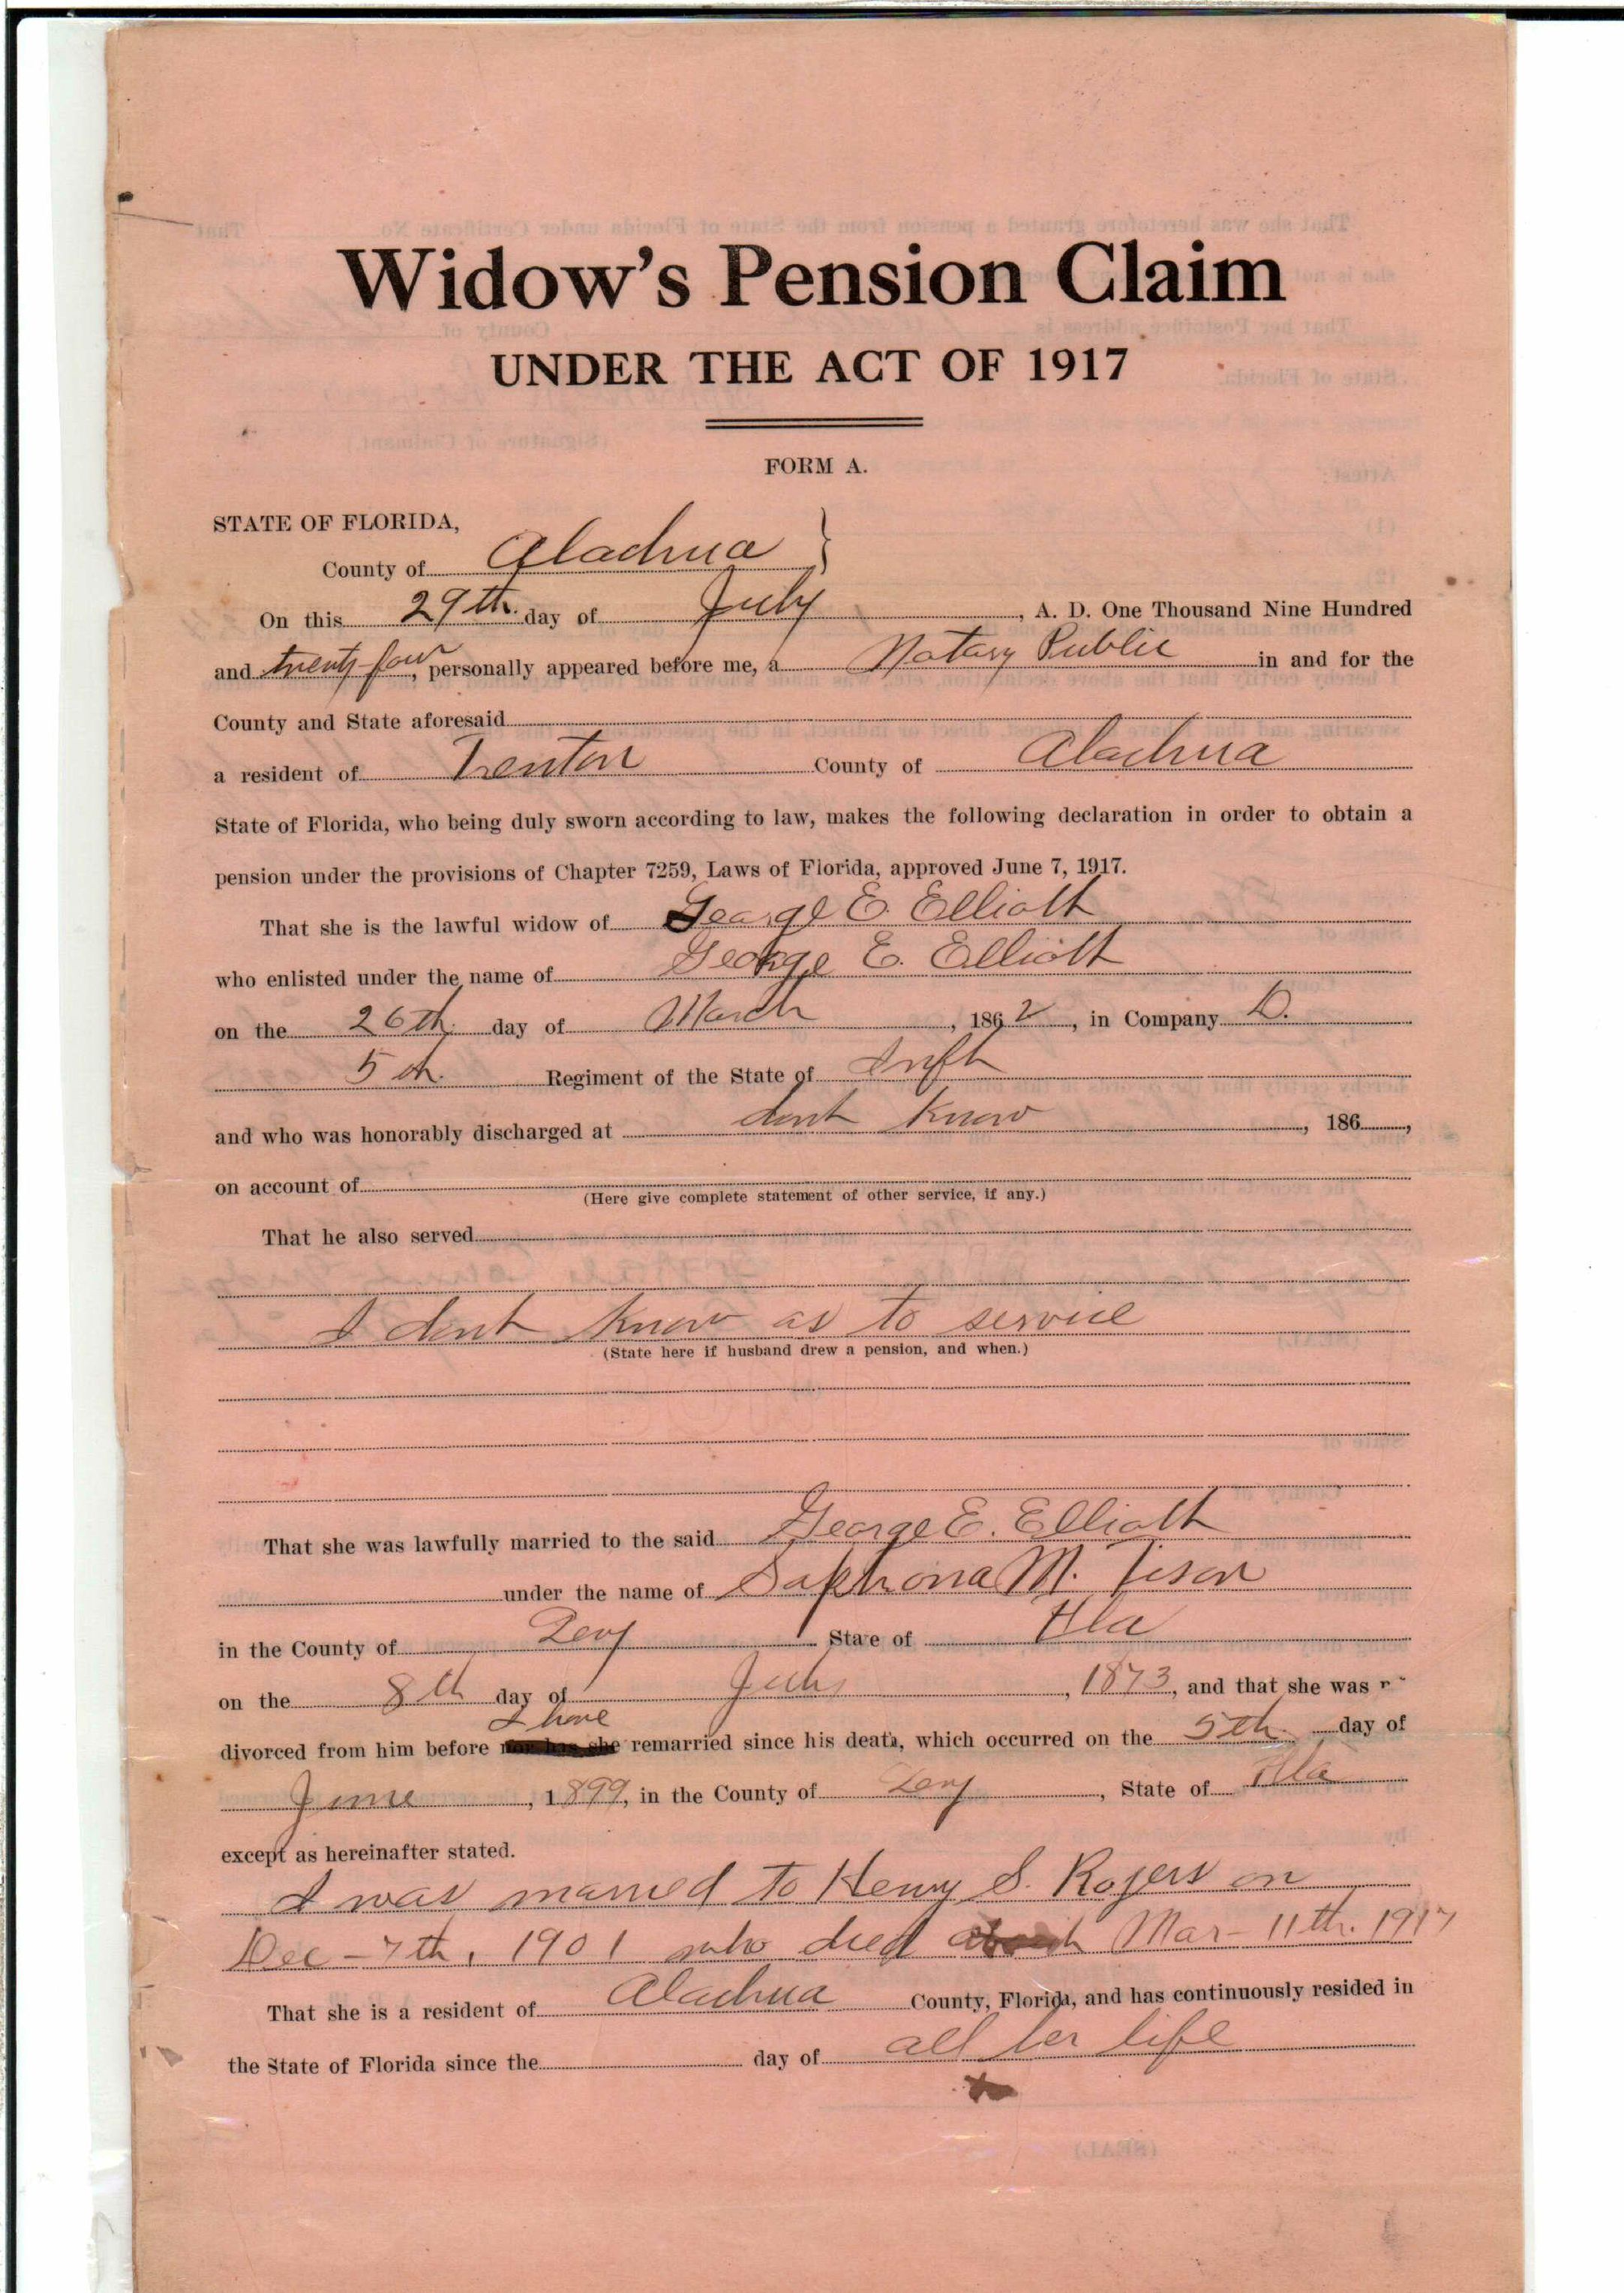 Widow's Pension Claim
UNDER THE ACT OF 1917
FORM A.
STATE OF FLORIDA,
County of Alachua }
On this 29th day of July, A. D. One Thousand Nine Hundred
and twenty-four, personally appeared before me, a Notary Public in and for the
County and State aforesaid
a resident of Trenton County of Alachua
State of Florida, who being duly sworn according to law, makes the following declaration in order to obtain a
pension under the provisions of Chapter 7259, Laws of Florida, approved June 7, 1917.
That she is the lawful widow of George E. Elliott
who enlisted under the name of George E. Elliott
on the 26th day of March, 1862, in Company D.
5th. Regiment of the State of Inft
and who was honorably discharged at dont know, 186
on account of
(Here give complete statement of other service, if any.)
That he also served
I dont know as to service
(State here if husband drew a pension, and when.)
That she was lawfully married to the said George E. Elliott
under the name of Saphrona M. Tison
in the County of Levy State of Fla
on the 8th day of July, 1873, and that she was
I have
divorced from him before remarried since his death, which occurred on the 5th. day of
June, 1899, in the County of Levy, State of Fla
except as hereinafter stated.
I was married to Henry S. Rogers on
Dec-7th, 1901 who died Mar-11th. 1917
That she is a resident of Alachua County, Florida, and has continuously resided in
the State of Florida since the day of all her life